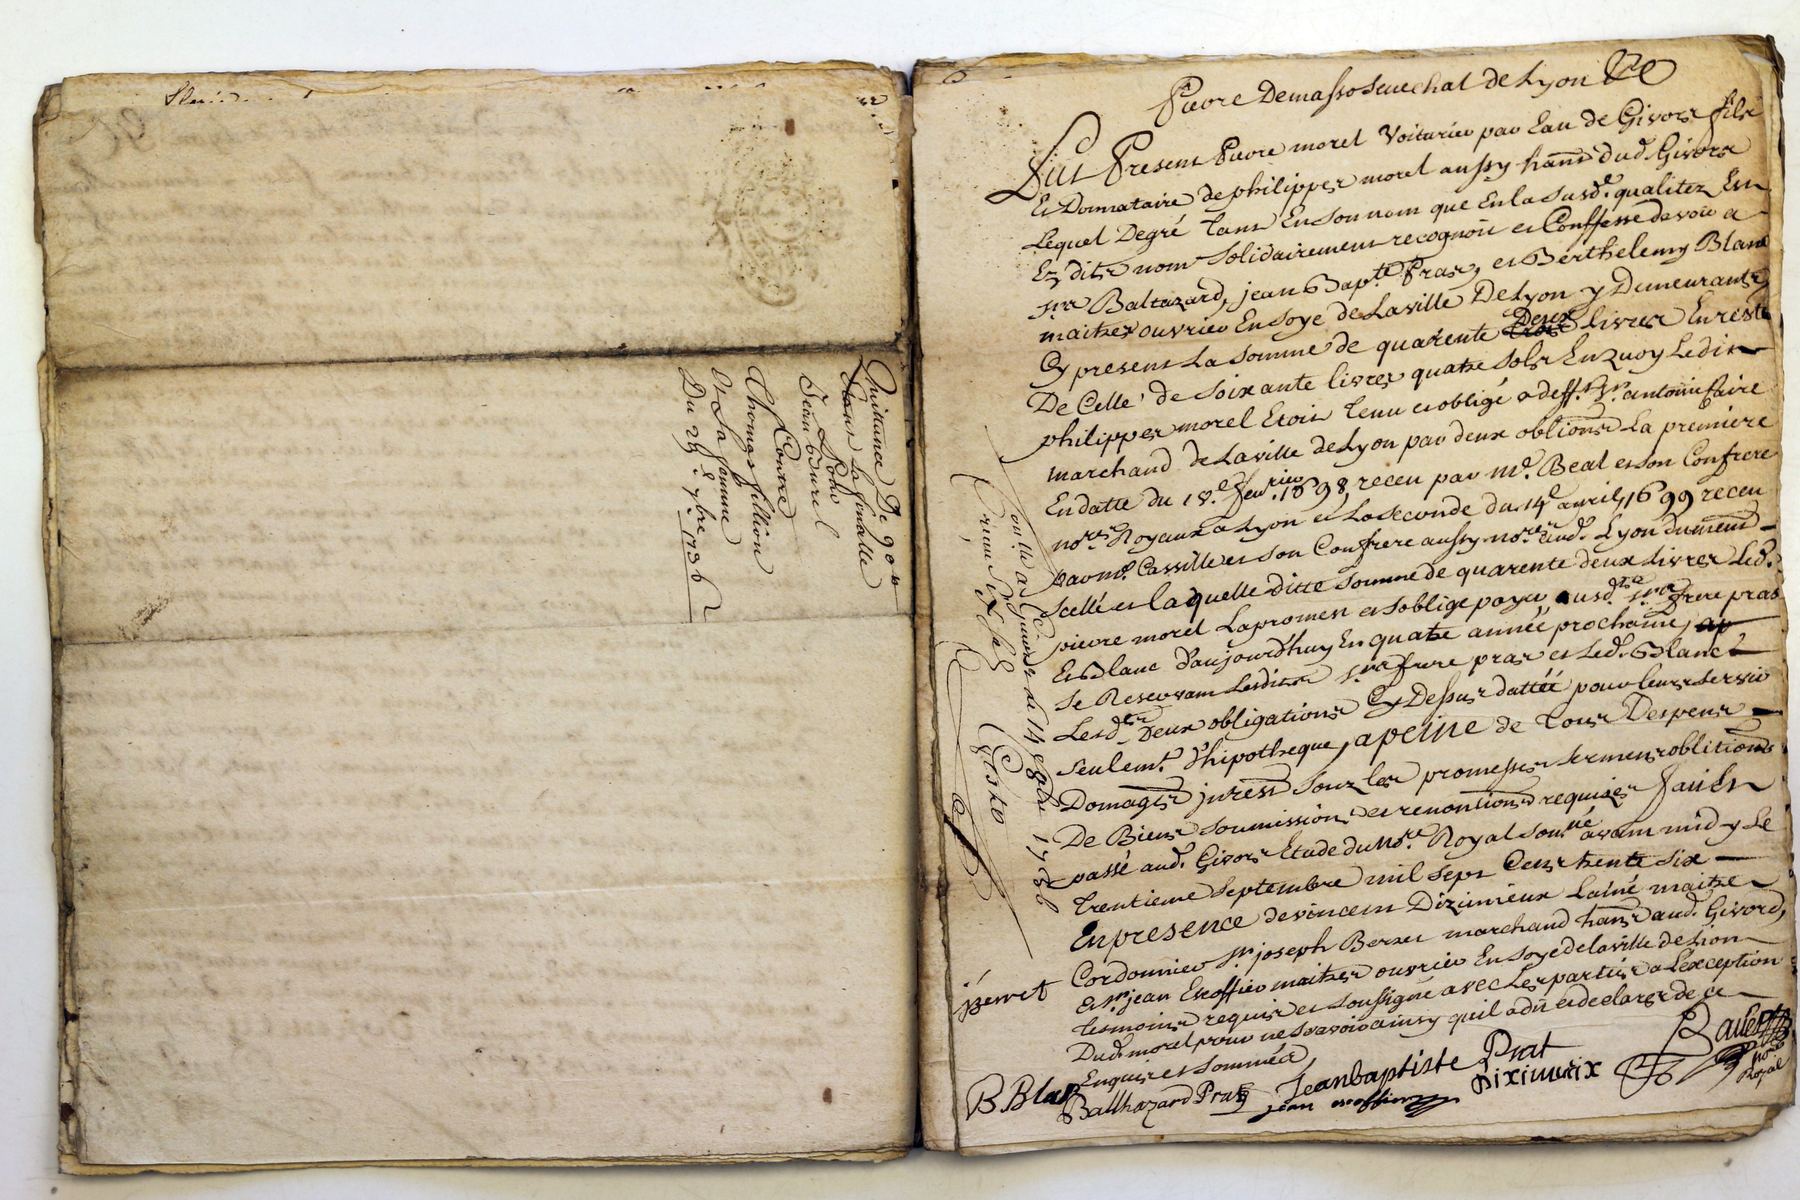 Quittance De 90ᵗᵗ
Jean burel
Contre
Thomas fillion
& La famme
Du 29ᵉ 7bre 1736
Pierre Demasso Senechal de Lyon
Fut Present Pierre morel Voiturier par Eau de Givors fils
Et Donnataire de philippes morel aussy hant dud. Givors
Lequel Degré tant En Son nom que En la Susde. qualitez Et
Ez dits nom Solidairement recognoit et Conffesse devoir a
srs Baltazard, jean Bapte. Pras, et Berthelemy Blanc
maitres ouvrier En Soye de La ville De Lyon y Demeurants
Cy present La Somme de quarente Deux livres En reste
De Celle de Soixante livres quatre Sols En quoy Ledit
philippes morel Etoit tenu et obligé a deff. sr. antoine faire
marchand de La ville de Lyon par deux oblions La premiere
En datte du 18e. fevrier 1698 receu par Me. Beal et son Confrere
nores Royaux a Lyon et La Seconde du 14e avril 1699 receu
par me. Cassille et son Confrere aussy nore. aud. Lyon dument
Scellé et laquelle ditte Somme de quarente deux Livres Led.
pierre morel La promet et s'oblige payer ausd. srs frere pras
Et Blanc d'aujourd'huy En quatre année prochaine,
Se Reservant Lesdits srs frere pras et Led. Blanc
Lesd. Deux obligations Cy Dessus dattéé pour leurs servir
Seulemt. d'hipotheque, a peine de tous Despens
Domages jnrest Sous les promesses serment oblitions
De Biens Soumissions et renontions requises fait et
passé aud. Givors Etude du nore. Royal Sousné avant midy Le
trentieme Septembre mil Sept Cens trente Six
En presence de vincent Diximieux Lainé maitre
Cordonnier sr. joseph Berret marchand hants aud. Givord,
et sr. jean Escoffier maitres ouvrier En Soye de la ville de Lion
tesmoins requis et Soussigné avec Les parties a L'exception
Dud. morel pour ne Scavoir ainsy qu'il a dit et declarer de ce
Enquis et Sommée
jberret
B Blan
Balthazard Prat
Jeanbaptiste Prat
jean escoffier
Diximieix
Royal